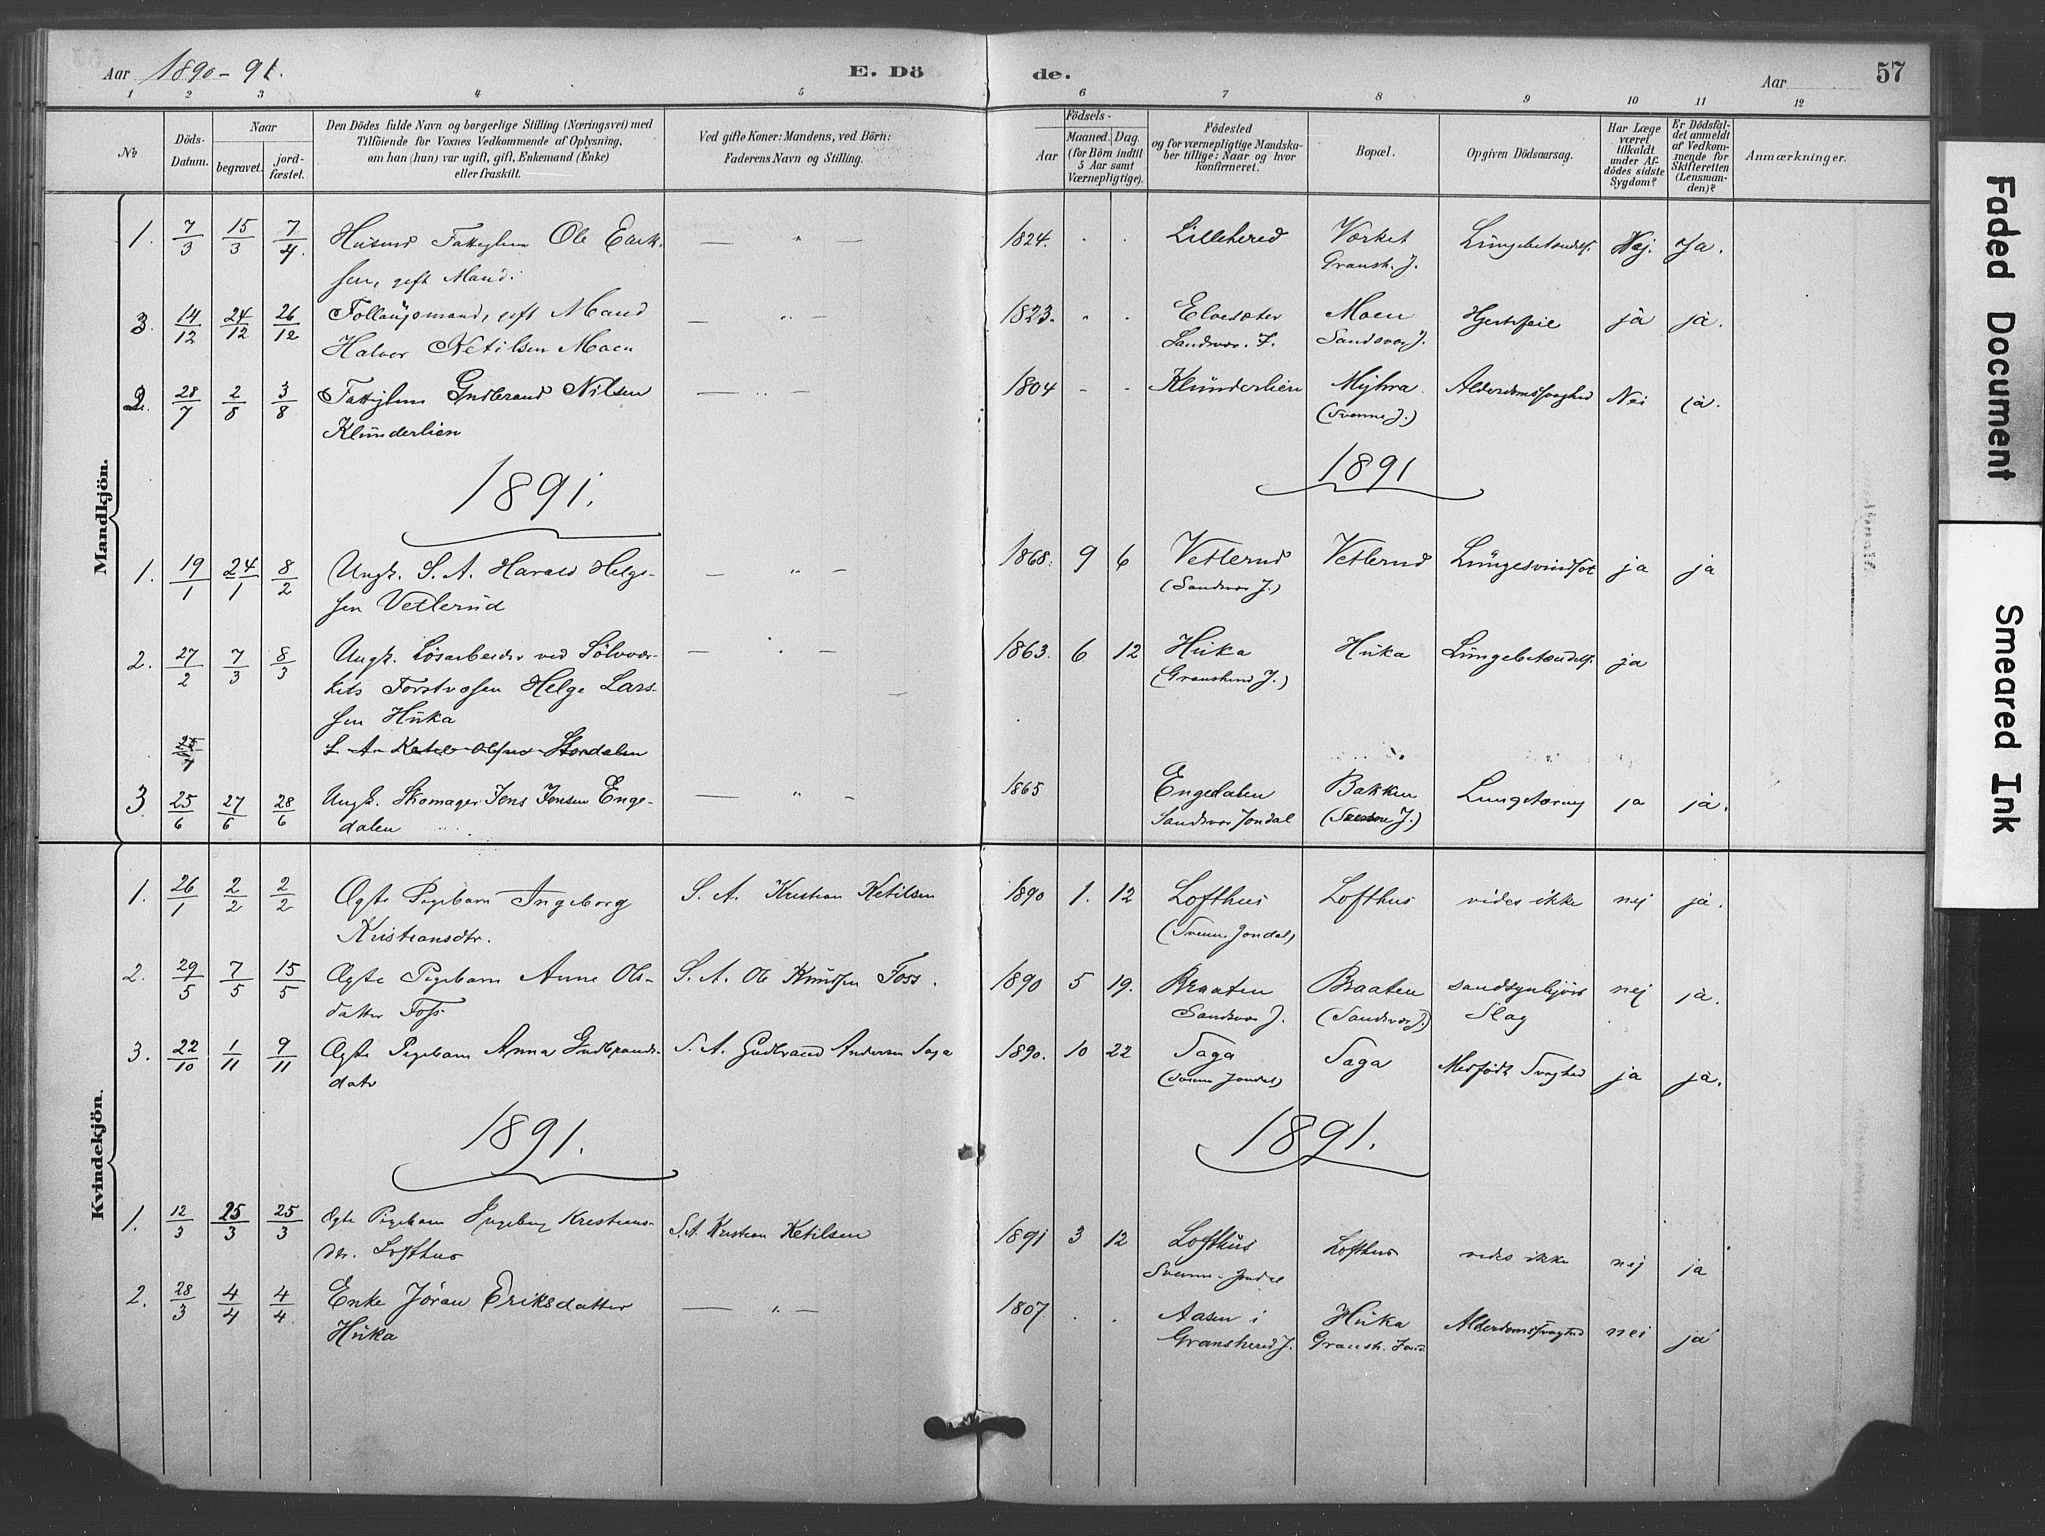 Aar 1890-91. E. Dö de. Aar 57
1 2 3 4 5 6 7 8 9 10 11 12
№ Döds-Datum. Naar begravet. jordfæstet.
Den Dödes fulde Navn og borgerlige Stilling (Næringsvei) med
Tilföiende for Voxnes Vedkommende af Oplysning,
om han (hun) var ugift, gift, Enkemand (Enke)
eller fraskilt.
Ved gifte Koner: Mandens, ved Börn:
Faderens Navn og Stilling.
Födsels-
Aar Maaned. Dag.
(for Börn indtil
5 Aar samt
Værnepligtige).
Födested
og for værnepligtige Mandska-
ber tillige: Naar og hvor
Konfirmeret.
Bopæl.
Opgiven Dödsaarsag.
Har Læge
været
tilkaldt
under Af-
dödes sidste
Sygdom?
Er Dödsfal-
det anmeldt
af Vedkom-
mende for
Skifteretten
(Lensman-
den)?
Anmærkninger.
Mandkjön.
1. 7/3 15/3 7/4. Husmd Fattiglem Ole Erik- — " — 1824. . . Lillehered Vorket Lungebetændelse Nej Ja.
sen, gift Mand. Gransh. J.
3. 14/12 24/12 26/12 Follaugsmand, gift Mand — " — 1823. " . Elvesæter Moen Hjertefeil ja ja.
Halvor Ketilsen Moen Sandsvær. J. Sandsvær J.
2. 28/7 2/8 3/8 Fattiglem Gudbrand Nilsen — " — 1804 - - Klunderlien Myhra Alderdomssvaghed Nei ja.
Klunderlien (Svenne J.)
1891. 1891
1. 19/1 24/1 8/2 Ungk. S. A. Harald Helge- — " — 1868. 9 6 Vetlerud Vetlerud Lungesvindsot ja ja
sen Vetlerud (Sandsvær J.)
2. 27/2 7/3 8/3 Ungk. Løsarbeider ved Sølvvær- — " — 1863. 6 12 Huka Huka Lungebetændelse ja
kets Forstvæsen Helge Lars- (Gransherad J.)
sen Huka
S. A. Ketil Olsen Stordalen
3. 25/6 27/6 28/6 Ungk. Skomager Jens Jensen Enge- — " — 1865 Engedalen Bakken Lungetæring ja ja.
dalen Sandsvær Jondal (Svenne J.)
Kvindekjön.
1. 26/1 2/2 2/2 Ægte Pigebarn Ingeborg S. A. Kristian Ketilsen 1890 1. 12 Lofthus Lofthus vides ikke nej ja.
Kristiansdtr. (Svenn. Jondal)
2. 29/5 7/5 15/5 Ægte Pigebarn Anne Ols- S. A. Ole Knudsen Foss. 1890 5 19. Braaten Braaten sandsynligvis nej ja.
datter Foss Sandsvær J. (Sandsvær J.) Slag
3. 22/10 1/11 9/11 Ægte Pigebarn Anna Gudbrands- S. A. Gudbrand Andersen Saga 1890. 10 22 Saga Saga Medfødt Svaghed ja ja.
datr (Svenne Jondal)
1891. 1891.
1. 12/3 25/3 25/3 Ægte Pigebarn Ingeborg Kristians- S. A. Kristian Ketilsen 1891 3 12 Lofthus Lofthus vides ikke nej ja
dtr. Lofthus Svenne-Jondal
2. 28/3 4/4 4/4 Enke Jøran Eriksdatter — " — 1807. . . Aasen i Huka Alderdomssvaghed nei ja
Huka Gransherad J. Gransh. Jond
Faded Document
Smeared Ink